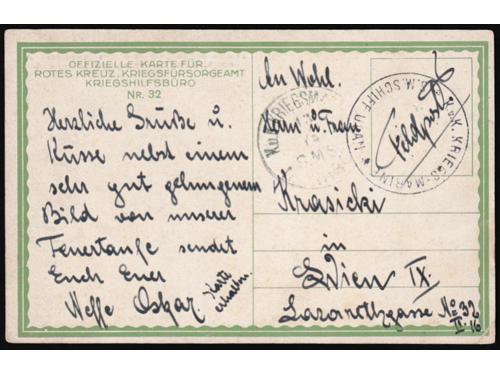 OFFIZIELLE KARTE FÜR
ROTES KREUZ, KRIEGSFÜRSORGEAMT
KRIEGSHILFSBÜRO
NR. 32
Herzliche Grüße u.
Küsse nebst einem
sehr gut gelungenem
Bild von unserer
Feuertaufe sendet
Euch Euer
Neffe Oskar
Karte
An Wohl.
Herrn u. Frau
Krasicki
in
Wien IX.
Lazarethgasse No 32
II. 16
Feldpost
K.u.K. KRIEGSMAR
S.M.S.
K.u.K. KRIEGS-MARINE
S.M. SCHIFF